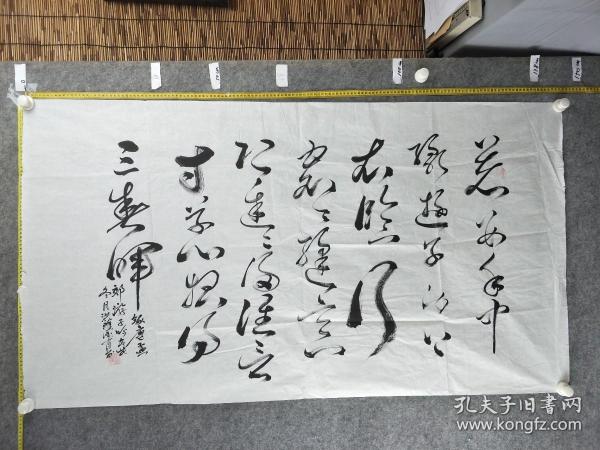 慈母手中
线游子身上
衣临行
密々缝意
恐迟々归谁言
寸草心报得
三春晖
孔夫子旧書网
www.kongfz.com